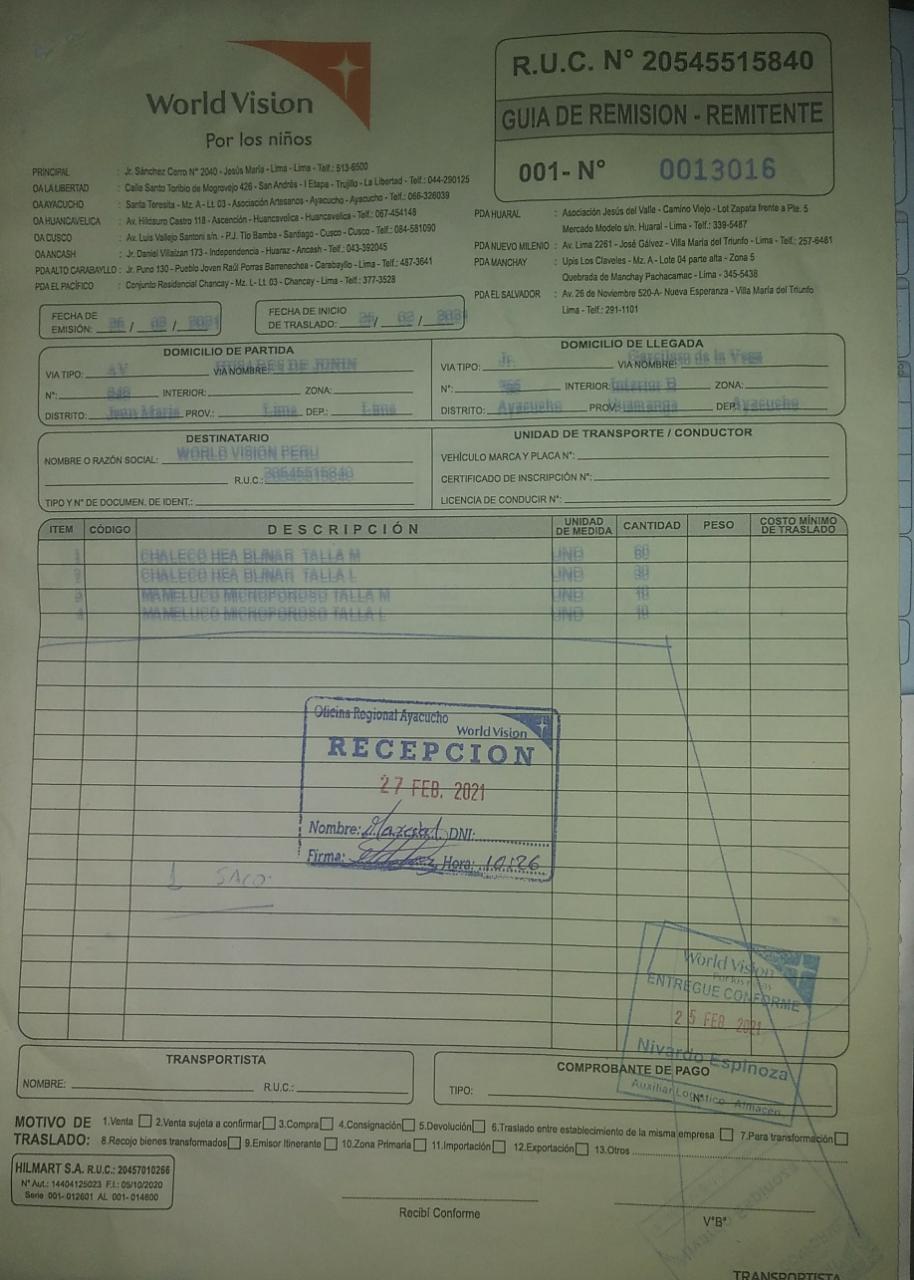 World Vision
Por los niños
R.U.C. N° 20545515840
GUIA DE REMISION - REMITENTE
001- N° 0013016
PRINCIPAL : Jr. Sánchez Cerro N° 2040 - Jesús María - Lima - Lima - Telf.: 613-6500
OA LA LIBERTAD : Calle Santo Toribio de Mogrovejo 426 - San Andrés - I Etapa - Trujillo - La Libertad - Telf.: 044-290125
OA AYACUCHO : Santa Teresita - Mz. A - Lt. 03 - Asociación Artesanos - Ayacucho - Ayacucho - Telf.: 066-326039
OA HUANCAVELICA : Av. Hildauro Castro 118 - Ascención - Huancavelica - Huancavelica - Telf.: 067-454148
OA CUSCO : Av. Luis Vallejo Santoni s/n. - P.J. Tío Bamba - Santiago - Cusco - Cusco - Telf.: 084-581090
OA ANCASH : Jr. Daniel Villaizan 173 - Independencia - Huaraz - Ancash - Telf.: 043-392045
PDA ALTO CARABAYLLO : Jr. Puno 130 - Pueblo Joven Raúl Porras Barrenechea - Carabayllo - Lima - Telf.: 487-3641
PDA EL PACÍFICO : Conjunto Residencial Chancay - Mz. L - Lt. 03 - Chancay - Lima - Telf.: 377-3528
PDA HUARAL : Asociación Jesús del Valle - Camino Viejo - Lot Zapata frente a Pte. 5
Mercado Modelo s/n. Huaral - Lima - Telf.: 339-5487
PDA NUEVO MILENIO : Av. Lima 2261 - José Gálvez - Villa María del Triunfo - Lima - Telf.: 257-6481
PDA MANCHAY : Upis Los Claveles - Mz. A - Lote 04 parte alta - Zona 5
Quebrada de Manchay Pachacamac - Lima - 345-5438
PDA EL SALVADOR : Av. 26 de Noviembre 520-A - Nueva Esperanza - Villa María del Triunfo
Lima - Telf.: 291-1101
FECHA DE
EMISIÓN: 25 / 02 / 2021
FECHA DE INICIO
DE TRASLADO: 25 / 02 / 2021
DOMICILIO DE PARTIDA
VIA TIPO: AV VIA NOMBRE: HUSARES DE JUNIN
N°: INTERIOR: ZONA:
DISTRITO: Jesus Maria PROV.: Lima DEP.: Lima
DOMICILIO DE LLEGADA
VIA TIPO: Jr. VIA NOMBRE: Garcilaso de la Vega
N°: INTERIOR: Interior B ZONA:
DISTRITO: Ayacucho PROV.: Huamanga DEP.: Ayacucho
DESTINATARIO
NOMBRE O RAZÓN SOCIAL: WORLD VISION PERU
R.U.C.: 20545515840
TIPO Y N° DE DOCUMEN. DE IDENT.:
UNIDAD DE TRANSPORTE / CONDUCTOR
VEHÍCULO MARCA Y PLACA N°:
CERTIFICADO DE INSCRIPCIÓN N°:
LICENCIA DE CONDUCIR N°:
ITEM CÓDIGO DESCRIPCIÓN UNIDAD DE MEDIDA CANTIDAD PESO COSTO MÍNIMO DE TRASLADO
1 CHALECO HEA BLINAR TALLA M UND 60
2 CHALECO HEA BLINAR TALLA L UND 30
3 MAMELUCO MICROPOROSO TALLA M UND 10
4 MAMELUCO MICROPOROSO TALLA L UND 10
Oficina Regional Ayacucho
World Vision
RECEPCION
27 FEB. 2021
Nombre: DNI:
Firma: Hora: 10:26
1 SACO
World Vision
Por los niños
ENTREGUE CONFORME
25 FEB 2021
Nivardo Espinoza
Auxiliar Logístico - Almacén
TRANSPORTISTA
NOMBRE: R.U.C.:
COMPROBANTE DE PAGO
TIPO: N°
MOTIVO DE TRASLADO: 1.Venta 2.Venta sujeta a confirmar 3.Compra 4.Consignación 5.Devolución 6.Traslado entre establecimiento de la misma empresa 7.Para transformación
8.Recojo bienes transformados 9.Emisor Itinerante 10.Zona Primaria 11.Importación 12.Exportación 13.Otros
HILMART S.A. R.U.C.: 20457010266
N° Aut.: 14404125023 F.I.: 05/10/2020
Serie 001- 012601 AL 001- 014600
Recibí Conforme
V°B°
TRANSPORTISTA